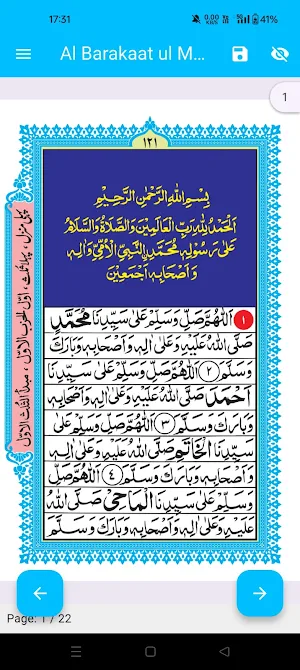 17:31
0.00 KB/S
5G
41%
Al Barakaat ul M...
1
١٢١
بِسْمِ اللهِ الرَّحْمٰنِ الرَّحِيْمِ
اَلْحَمْدُ لِلّٰهِ رَبِّ الْعَالَمِيْنَ وَالصَّلَاةُ وَالسَّلَامُ
عَلٰى رَسُوْلِهٖ مُحَمَّدِ ِالنَّبِيِّ الْاُمِّيِّ وَاٰلِهٖ
وَاَصْحَابِهٖ اَجْمَعِيْنَ
١ اَللّٰهُمَّ صَلِّ وَسَلِّمْ عَلٰى سَيِّدِنَا مُحَمَّدٍ
صَلَّى اللهُ عَلَيْهِ وَعَلٰى اٰلِهٖ وَاَصْحَابِهٖ وَبَارَكَ
وَسَلَّمَ ٢ اَللّٰهُمَّ صَلِّ وَسَلِّمْ عَلٰى سَيِّدِنَا
اَحْمَدَ صَلَّى اللهُ عَلَيْهِ وَعَلٰى اٰلِهٖ وَاَصْحَابِهٖ
وَبَارَكَ وَسَلَّمَ ٣ اَللّٰهُمَّ صَلِّ وَسَلِّمْ عَلٰى
سَيِّدِنَا الْخَاتَمِ صَلَّى اللهُ عَلَيْهِ وَعَلٰى اٰلِهٖ
وَاَصْحَابِهٖ وَبَارَكَ وَسَلَّمَ ٤ اَللّٰهُمَّ صَلِّ
وَسَلِّمْ عَلٰى سَيِّدِنَا الْمَاحِيْ صَلَّى اللهُ
عَلَيْهِ وَعَلٰى اٰلِهٖ وَاَصْحَابِهٖ وَبَارَكَ وَسَلَّمَ
پہلی منزل ، پہلا ثلث ، اوّل الحزب الاوّل ، مبدأ الثلث الاوّل
Page: 1 / 22